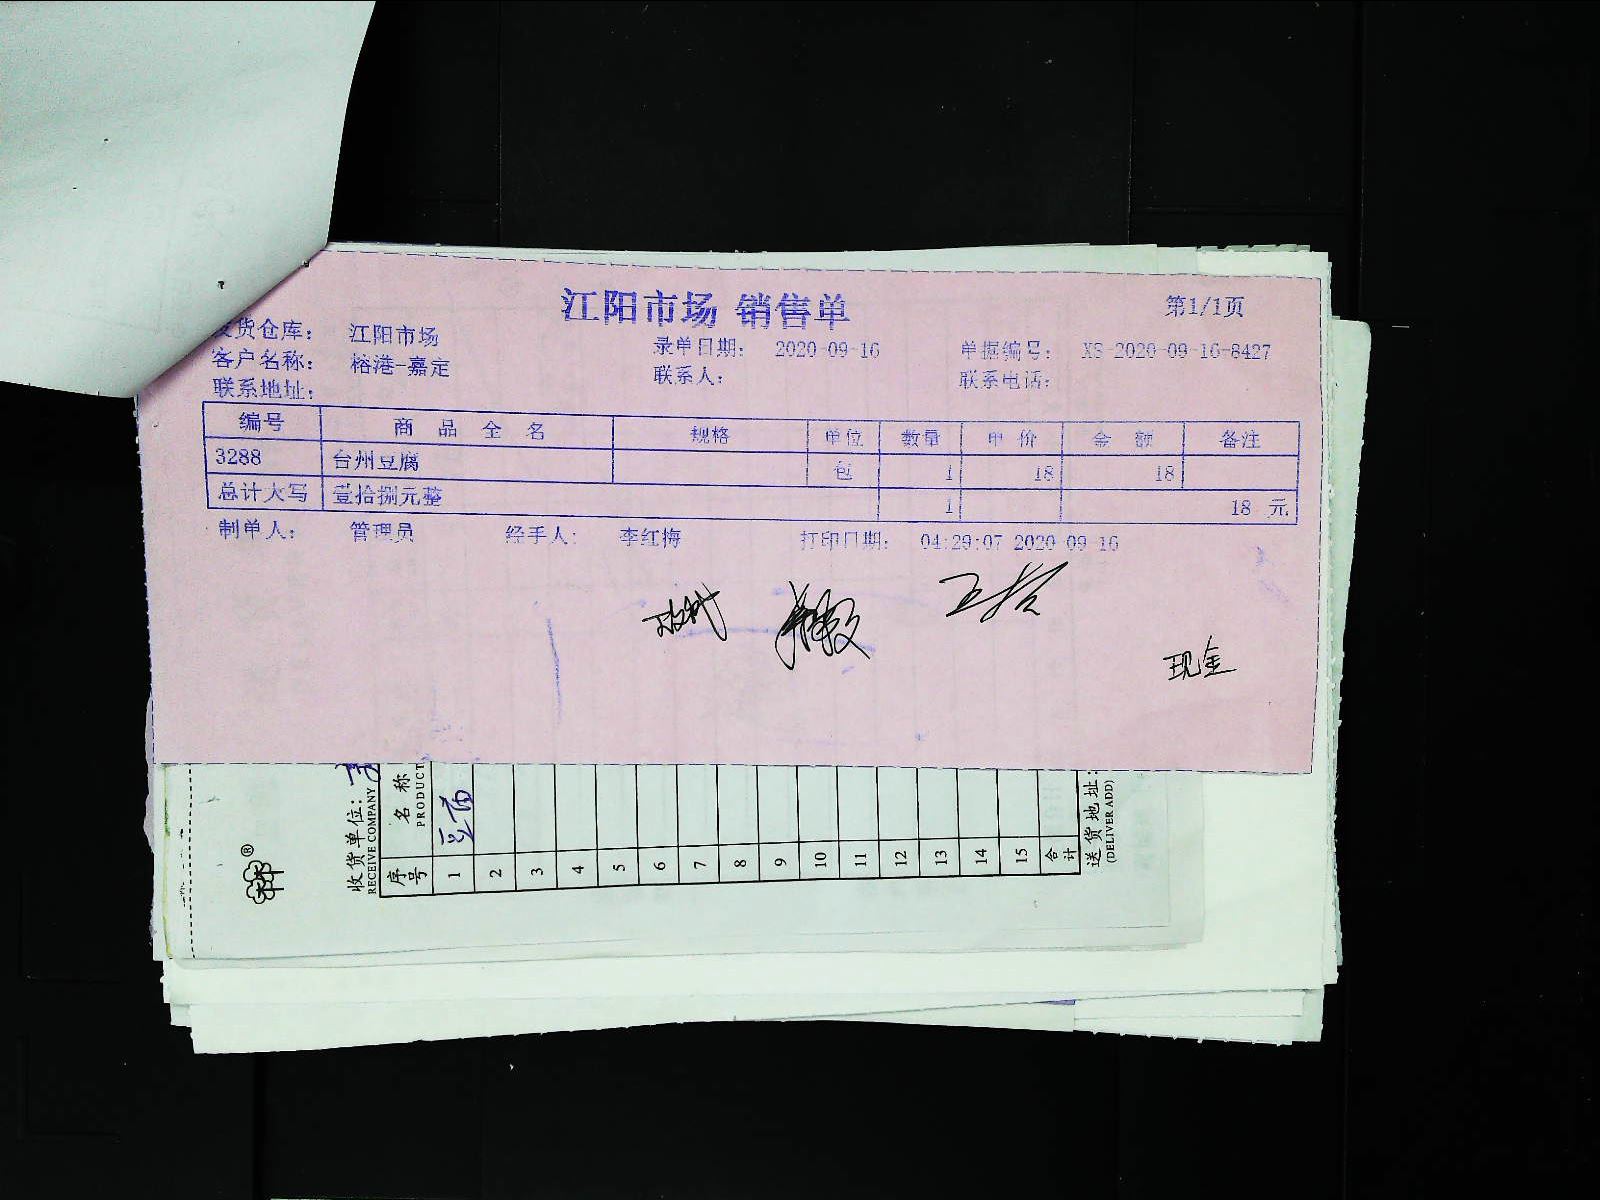 江阳市场 销售单
第1/1页
发货仓库： 江阳市场
录单日期： 2020-09-16
单据编号： XS-2020-09-16-8427
客户名称： 榕港-嘉定
联系人：
联系电话：
联系地址：
编号 商品全名 规格 单位 数量 单价 金额 备注
3288 台州豆腐 包 1 18 18
总计大写 壹拾捌元整 1 18 元
制单人： 管理员 经手人： 李红梅 打印日期： 04:29:07 2020-09-16
现金
收货单位：
RECEIVE COMPANY
序号 名称
PRODUCT
1 豆腐
2
3
4
5
6
7
8
9
10
11
12
13
14
15
合计
送货地址：
(DELIVER ADD)